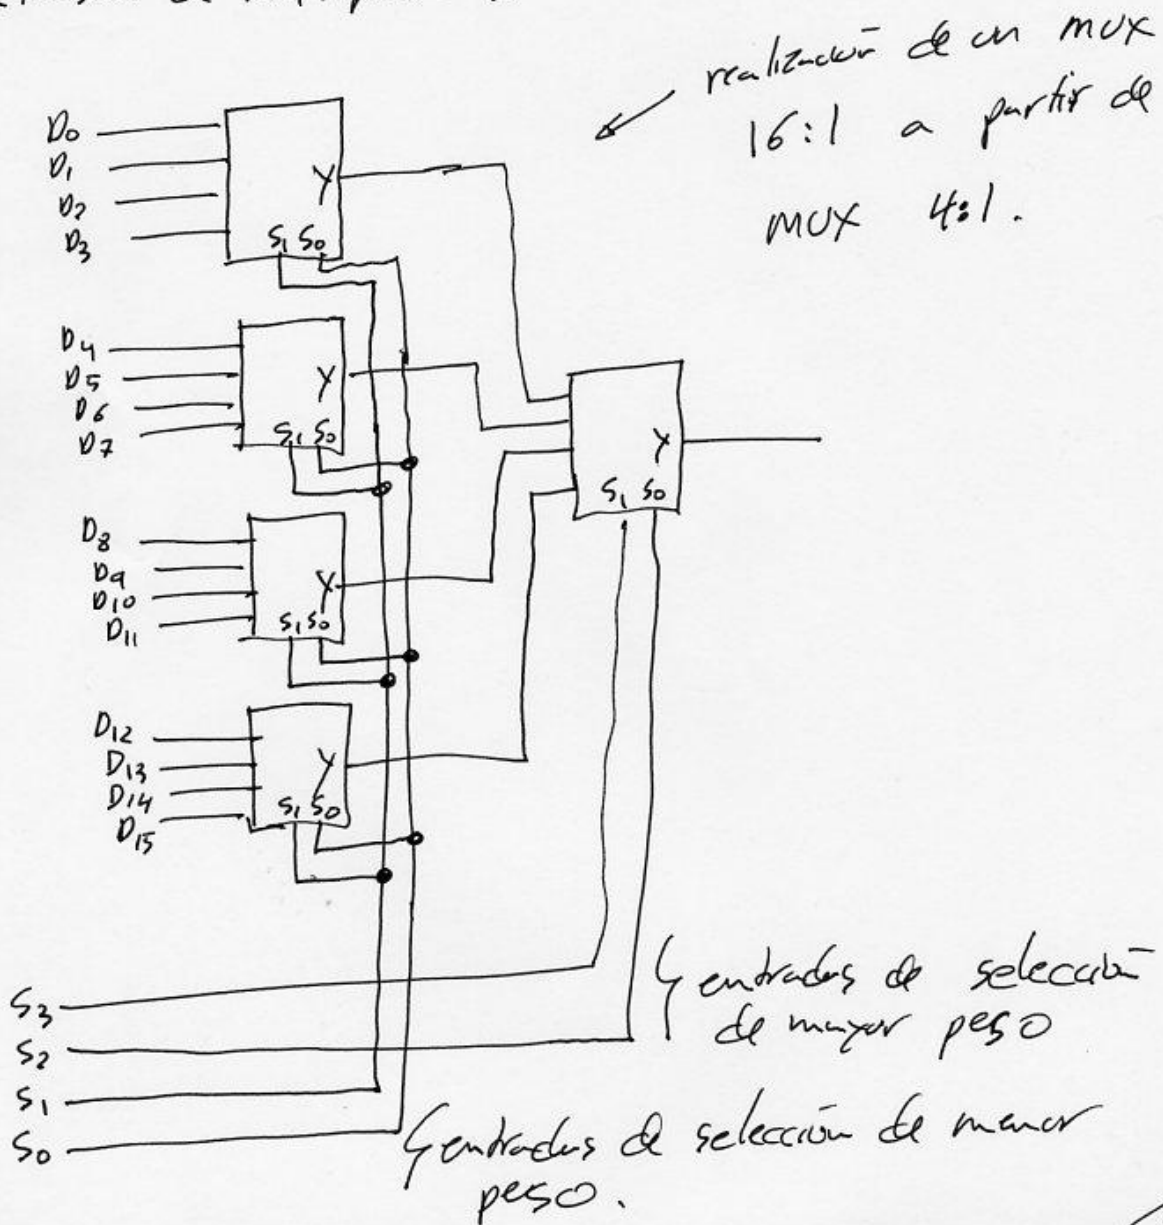 realización de un mux
16:1 a partir de
mux 4:1.
D0
D1
D2
D3
Y
S1 S0
D4
D5
D6
D7
Y
S1 S0
D8
D9
D10
D11
Y
S1 S0
D12
D13
D14
D15
Y
S1 S0
Y
S1 S0
S3
S2
S1
S0
entradas de selección
de mayor peso
entradas de selección de menor
peso.